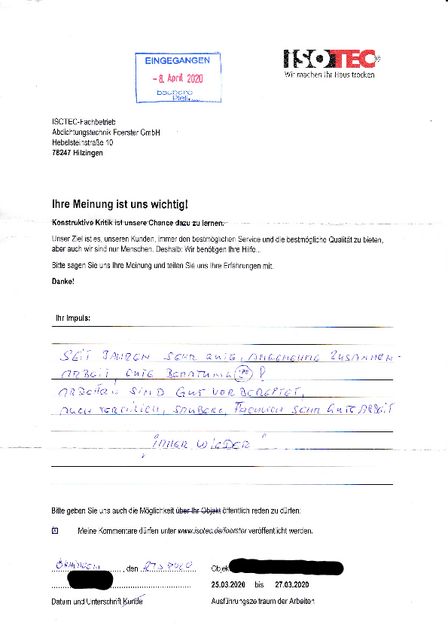 EINGEGANGEN
- 8. April 2020
ISOTEC®
Wir machen Ihr Haus trocken
ISOTEC-Fachbetrieb
Abdichtungstechnik Foerster GmbH
Hebelsteinstraße 10
78247 Hilzingen
Ihre Meinung ist uns wichtig!
Konstruktive Kritik ist unsere Chance dazu zu lernen.
Unser Ziel ist es, unseren Kunden, immer den bestmöglichen Service und die bestmögliche Qualität zu bieten,
aber auch wir sind nur Menschen. Deshalb: Wir benötigen Ihre Hilfe...
Bitte sagen Sie uns Ihre Meinung und teilen Sie uns Ihre Erfahrungen mit.
Danke!
Ihr Impuls:
SEIT JAHREN SEHR GUTE, ANGENEHME ZUSAMMEN-
ARBEIT GUTE BERATUNG !
ARBEITEN SIND GUT VORBEREITET,
AUCH SAUBERE, SEHR GUTE ARBEIT
"IMMER WIEDER"
Bitte geben Sie uns auch die Möglichkeit über Ihr Objekt öffentlich reden zu dürfen:
Meine Kommentare dürfen unter www.isotec.de/foerster veröffentlicht werden.
, den
Objekt
25.03.2020 bis 27.03.2020
Datum und Unterschrift Kunde
Ausführungszeitraum der Arbeiten